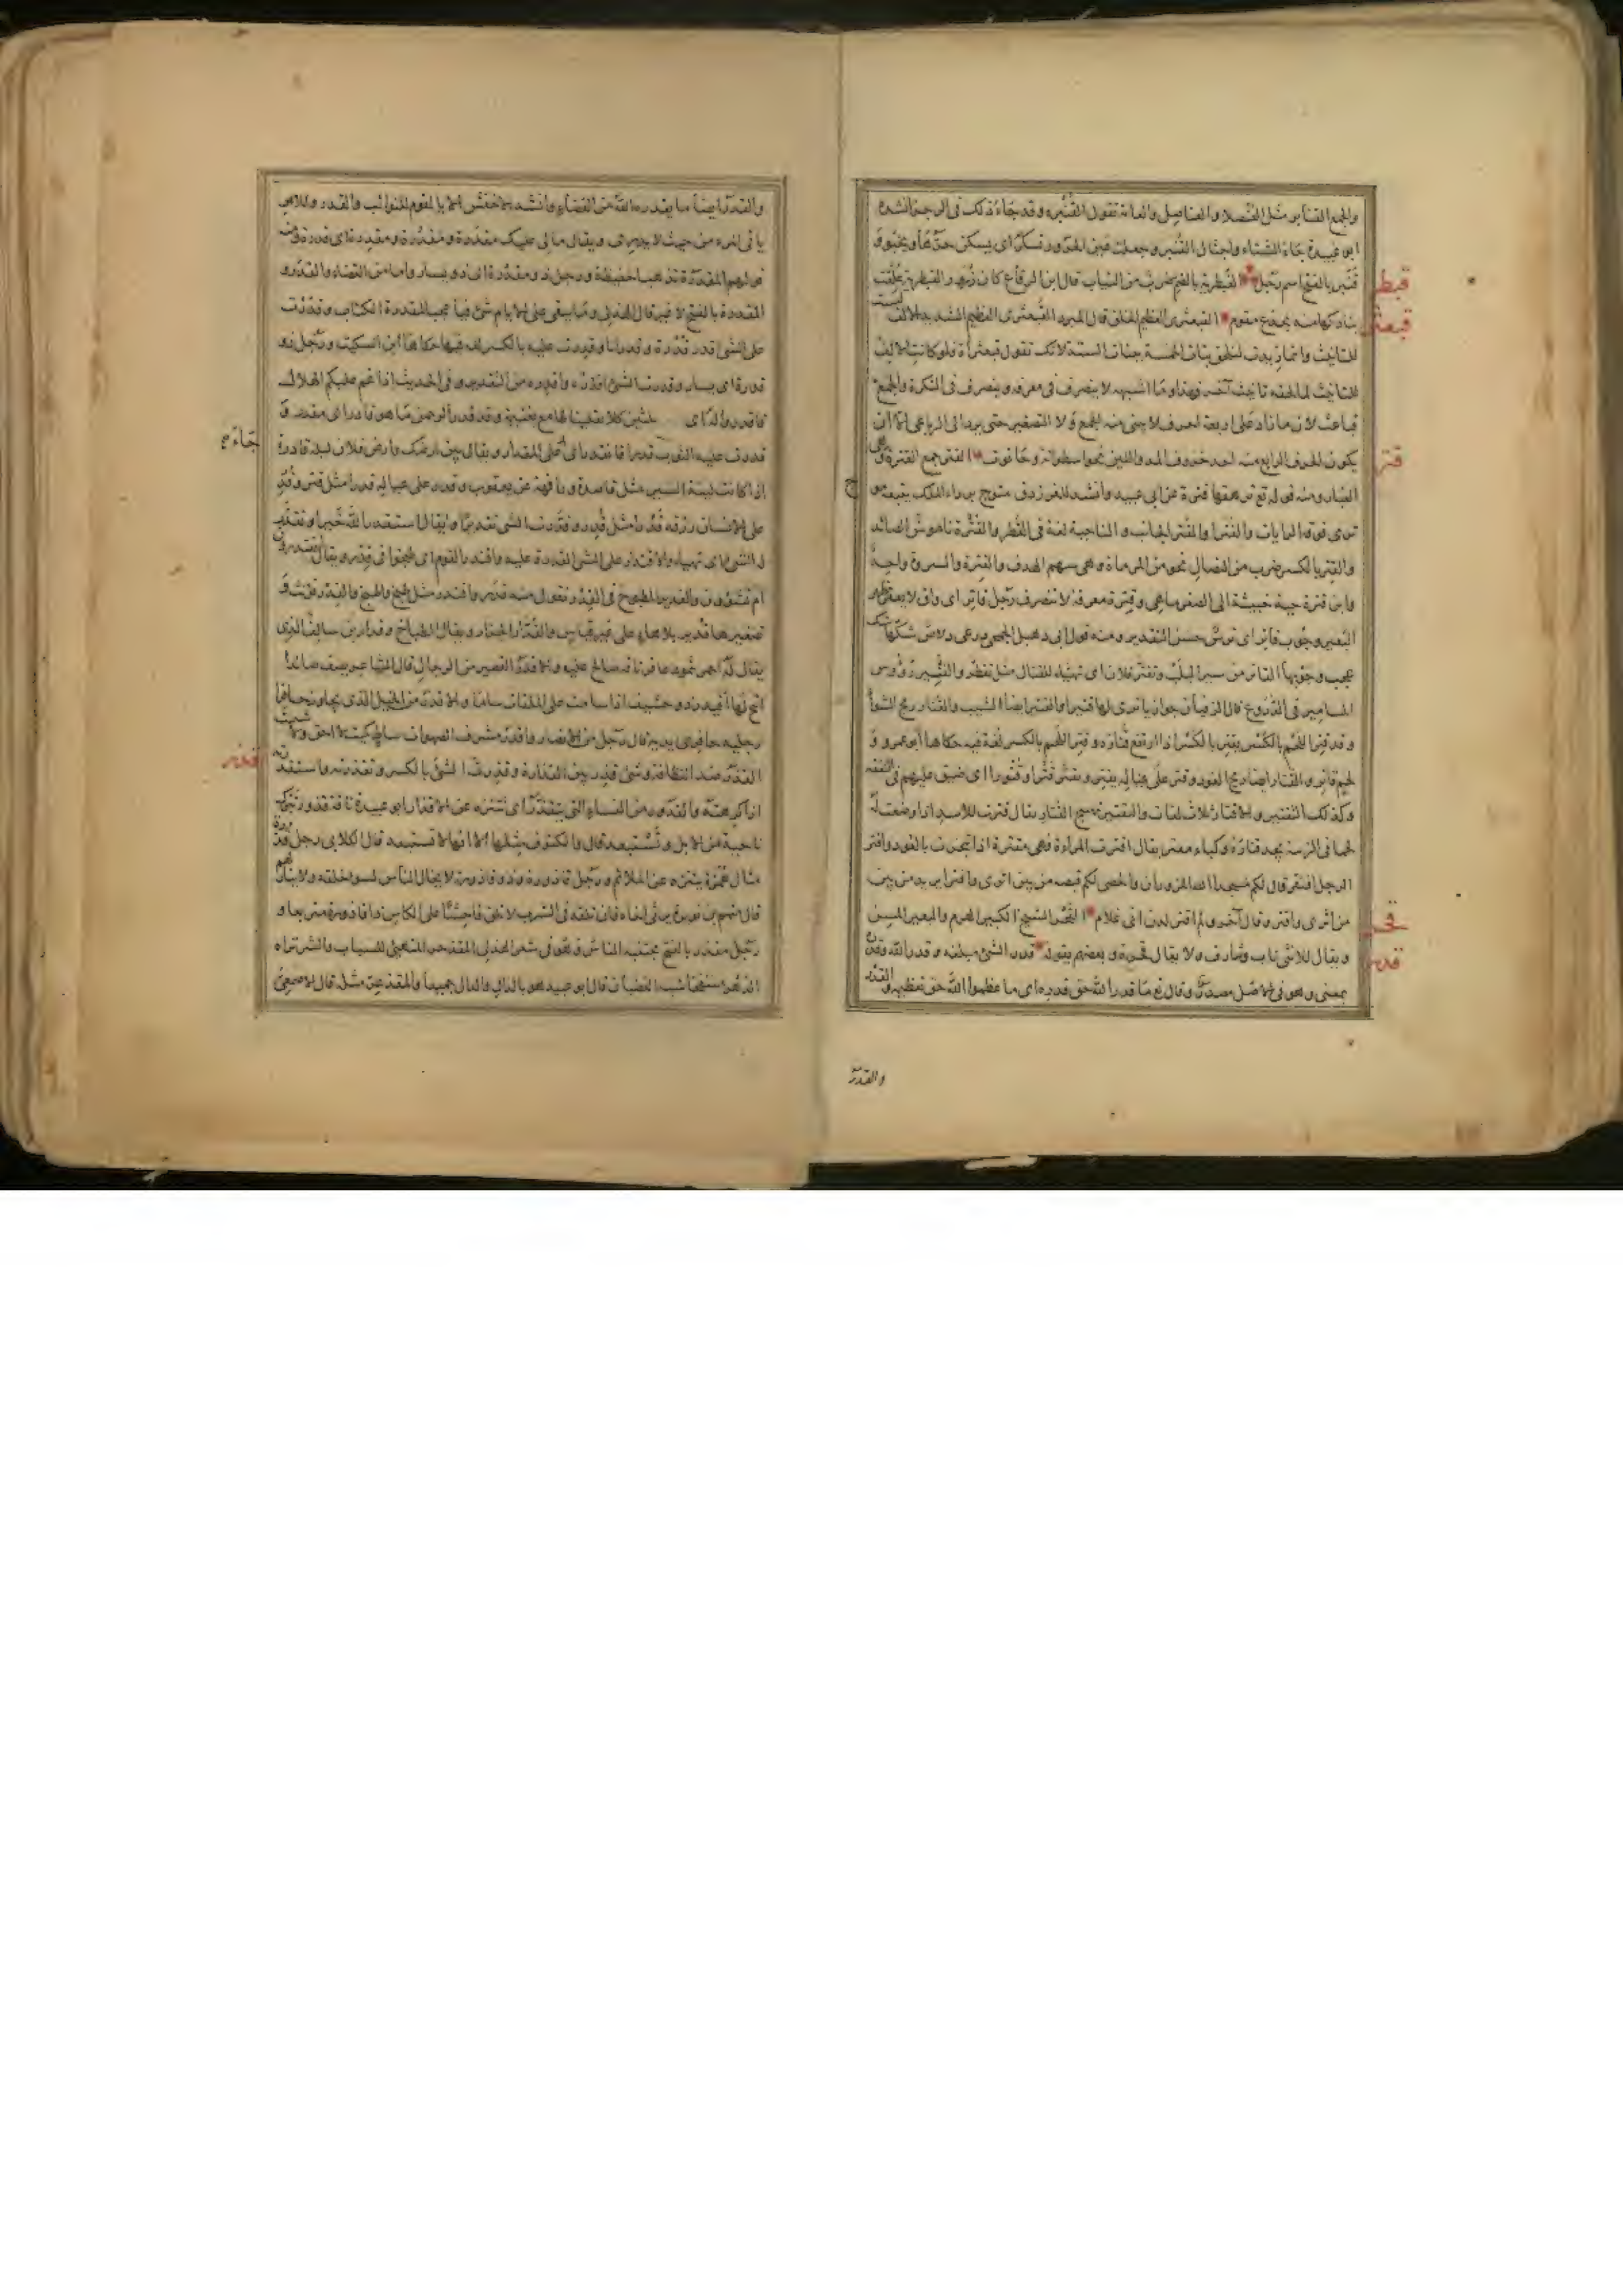 والجمع القنابر مثل العنصلاء والعناصل والعامة تقول القنبرة وقد جاء ذلك في الرجز انشده
ابو عبيدة جاء الشتاء واجثال القنبر وجعلت عين الحرور تسكر اى يسكن حرها ويخبو و
قنبر بالفتح اسم رجل القبطرية بالضم ضرب من الثياب قال ابن الرقاع كان زرور القبطرية علقت
قبطر
بنادكها منه بجذع مقوم القبعثرى العظيم الخلق قال المبرد القبعثرى العظيم الشديد والالف ليست
قبعثر
للتانيث وانما زيدت لتلحق بنات الخمسة ببنات الستة لانك تقول قبعثراة فلو كانت الالف
للتانيث لما لحقه تانيث آخر فهذا وما اشبهه لا ينصرف فى معرفة وينصرف فى النكرة والجمع
قباعث لان ما زاد على اربعة احرف لا يبنى منه الجمع ولا التصغير حتى يرد الى الرباعى الا ان
يكون الحرف الرابع منه احد حروف المد واللين نحو اسطوانة وحانوت القتر جمع القترة وهى
قتر
الغبار ومنه قوله تع ترهقها قترة عن ابى عبيد وانشد للفرزدق متوج برداء الملك يتبعه موج
ترى فوقه الرايات والقترا والقتر الجانب والناحية لغة فى القطر والقترة ناموس الصائد
والقتر بالكسر ضرب من النصال نحو من المرماة وهى سهم الهدف والقترة والسروة واحد
وابن قترة حية خبيثة الى الصغر ما هى وقترة معرفة لا تنصرف رجل قاتر اى واق لا يعقر ظهر
البعير وجوب قاتر اى ترس حسن التقدير ومنه قول ابى دهبل الجمحى درعى دلاص شكها شك
عجب وجوبها القاتر من سير اليلب وتقتر فلان اى تهيأ للقتال مثل تقطر والقتير رؤوس
المسامير فى الدروع قال الزفيان جوارنا ترى لها قتيرا والقتير ايضا الشيب والقتار ريح الشواء
وقد قتر اللحم بالكسر يقتر بالكسر اذا ارتفع قتاره وقتر اللحم بالكسر لغة فيه حكاها ابو عمرو و
لحم قاتر والقتار ايضا ريح العود وقتر على عياله يقتر ويقتر قترا وقتورا اى ضيق عليهم فى النفقة
وكذلك التقتير والاقتار ثلاث لغات والتقتير تهييج القتار يقال قترت للاسد اذا وضعت له
لحما فى الزبية يجد قتاره وكباء مقتر يقال اقترت المراة فهى مقترة اذا تبخرت بالعود واقتر
الرجل افتقر قال لكم مسجدا الله المزوران والحصى لكم قبصه من بين اثرى واقترا يريد من بين
من اثرى واقتر وقال آخر ولم اقتر لدن انى غلام القحر الشيخ الكبير الهرم والبعير المسن
قحر
ويقال للانثى ناب وشارف ولا يقال قحرة وبعضهم يقوله قدر الشئ مبلغه وقدر الله وقدره
قدر
بمعنى وهو فى الاصل مصدر وقال تع ما قدروا الله حق قدره اى ما عظموا الله حق تعظيمه والقدر
والقدر
والقدر ايضا ما يقدره الله من القضاء وانشد الاخفش الا يا لقوم للنوائب والقدر وللامر
ياتى المرء من حيث لا يدرى ويقال مالى عليك مقدرة ومقدرة ومقدرة اى قدرة ومنه
قولهم المقدرة تذهب الحفيظة ورجل ذو مقدرة اى ذو يسار واما من القضاء والقدر و
المقدرة بالفتح لا غير قال الهذلى وما يبقى على الايام شئ فيا عجبا لمقدرة الكتاب وقدرت
على الشئ اقدر قدرة وقدرانا وقدرت عليه بالكسر لغة فيها حكاها ابن السكيت ورجل ذو
قدرة اى يسار وقدرت الشئ اقدره واقدره من التقدير وفى الحديث اذا غم عليكم الهلال
فاقدروا له اى ثلثين كلا بقلينا طامع بغنيمة وقد قدر الرحمن ما هو قادر اى مقدر و
قدرت عليه الثوب قدرا فانقدر اى جاء على المقدار ويقال بين ارضك وارض فلان ليلة قادرة
جاء صح
اذا كانت لينة السير مثل قاصدة ورافهة عن يعقوب وقدر على عياله قدرا مثل قتر وقدر
على الانسان رزقه قدرا مثل قتر وقدرت الشئ تقديرا ويقال استقدر الله خيرا وتقدر
له الشئ اى تهيأ والاقتدار على الشئ القدرة عليه واقتدر القوم اى طبخوا فى قدر ويقال اتقتدرون
ام تشتوون والقدير المطبوخ فى القدر تقول منه قدر واقتدر مثل طبخ واطبخ والقدر تؤنث و
تصغيرها قدير بلا هاء على غير قياس والقدار الجزار ويقال الطباخ وقدار بن سالف الذى
يقال له احمر ثمود عاقر ناقة صالح عليه والاقدر القصير من الرجال قال الشاعر يصف صائدا
اتيح لها اقيدر ذو حشيف اذا سامت على الملقات ساما والاقدر من الخيل الذى يجاوز حافرا
رجليه حافرى يديه قال رجل من الانصار واقدر مشرف الصهوات ساط كميت لا احق ولا شئيت
القذر ضد النظافة وشئ قذر بين القذارة وقذرت الشئ بالكسر وتقذرته واستقذرته
قذر
اذا كرهته والقذور من النساء التى تتقذر اى تتنزه عن الاقذار ابو عبيدة ناقة قذور تبرك
ناحية من الابل وتستبعد قال والكنوف مثلها الا انها لا تستبعد قال الكلابى رجل قذرة
مثال همزة يتنزه عن الملائم ورجل قاذورة وذو قاذورة لا يخال الناس لسوء خلقه ولا ينازلهم
قال متمم بن نويرة يرثى اخاه فان تلقه فى الشرب لا تلق فاحشا على الكاس ذا قاذورة متزبعا و
رجل مقذر بالفتح يجتنبه الناس وهو فى شعر الهذلى المقذحر المتهيئ للسباب والشر تراه
الدهر منتفخا شبه الغضبان قال ابو عبيد هو بالذال والدال جميعا والمقذعر مثله قال الاصمعى